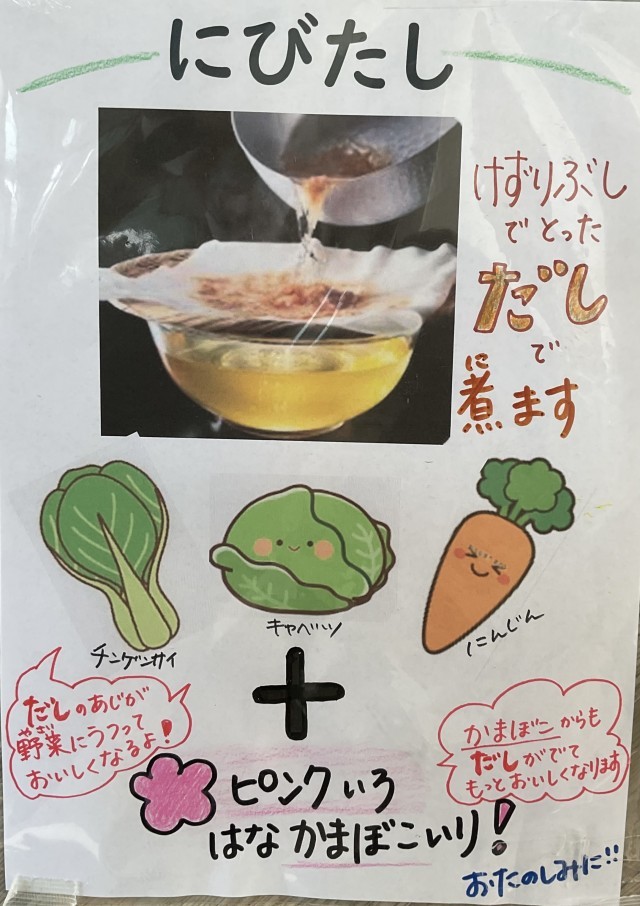 にびたし
けずりぶし
でとった
だし
で
煮ます
に
チンゲンサイ
キャベツ
にんじん
+
だしのあじが
野菜にうつって
やさい
おいしくなるよ!
かまぼこからも
だしがでて
もっとおいしくなります
ピンクいろ
はなかまぼこいり!
おたのしみに!!